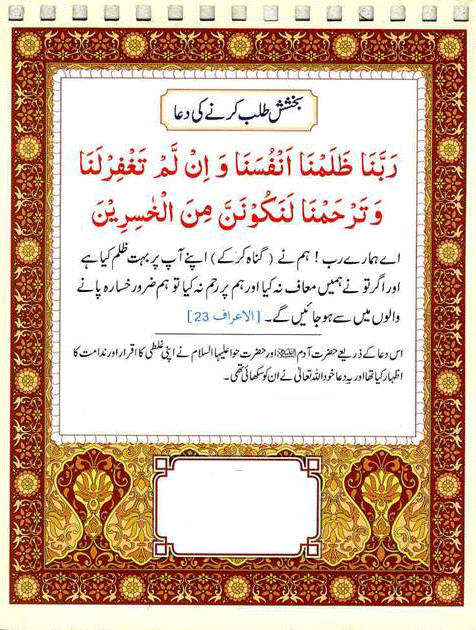 بخشش طلب کرنے کی دعا
رَبَّنَا ظَلَمْنَا اَنْفُسَنَا وَ اِنْ لَّمْ تَغْفِرْلَنَا
وَ تَرْحَمْنَا لَنَكُوْنَنَّ مِنَ الْخٰسِرِيْنَ
اے ہمارے رب ! ہم نے (گناہ کر کے) اپنے آپ پر بہت ظلم کیا ہے
اور اگر تو نے ہمیں معاف نہ کیا اور ہم پر رحم نہ کیا تو ہم ضرور خسارہ پانے
والوں میں سے ہو جائیں گے۔ [الاعراف 23]
اس دعا کے ذریعے حضرت آدم علیہ السلام اور حضرت حوا علیہا السلام نے اپنی غلطی کا اقرار اور ندامت کا
اظہار کیا تھا اور یہ دعا خود اللہ تعالیٰ نے ان کو سکھائی تھی۔